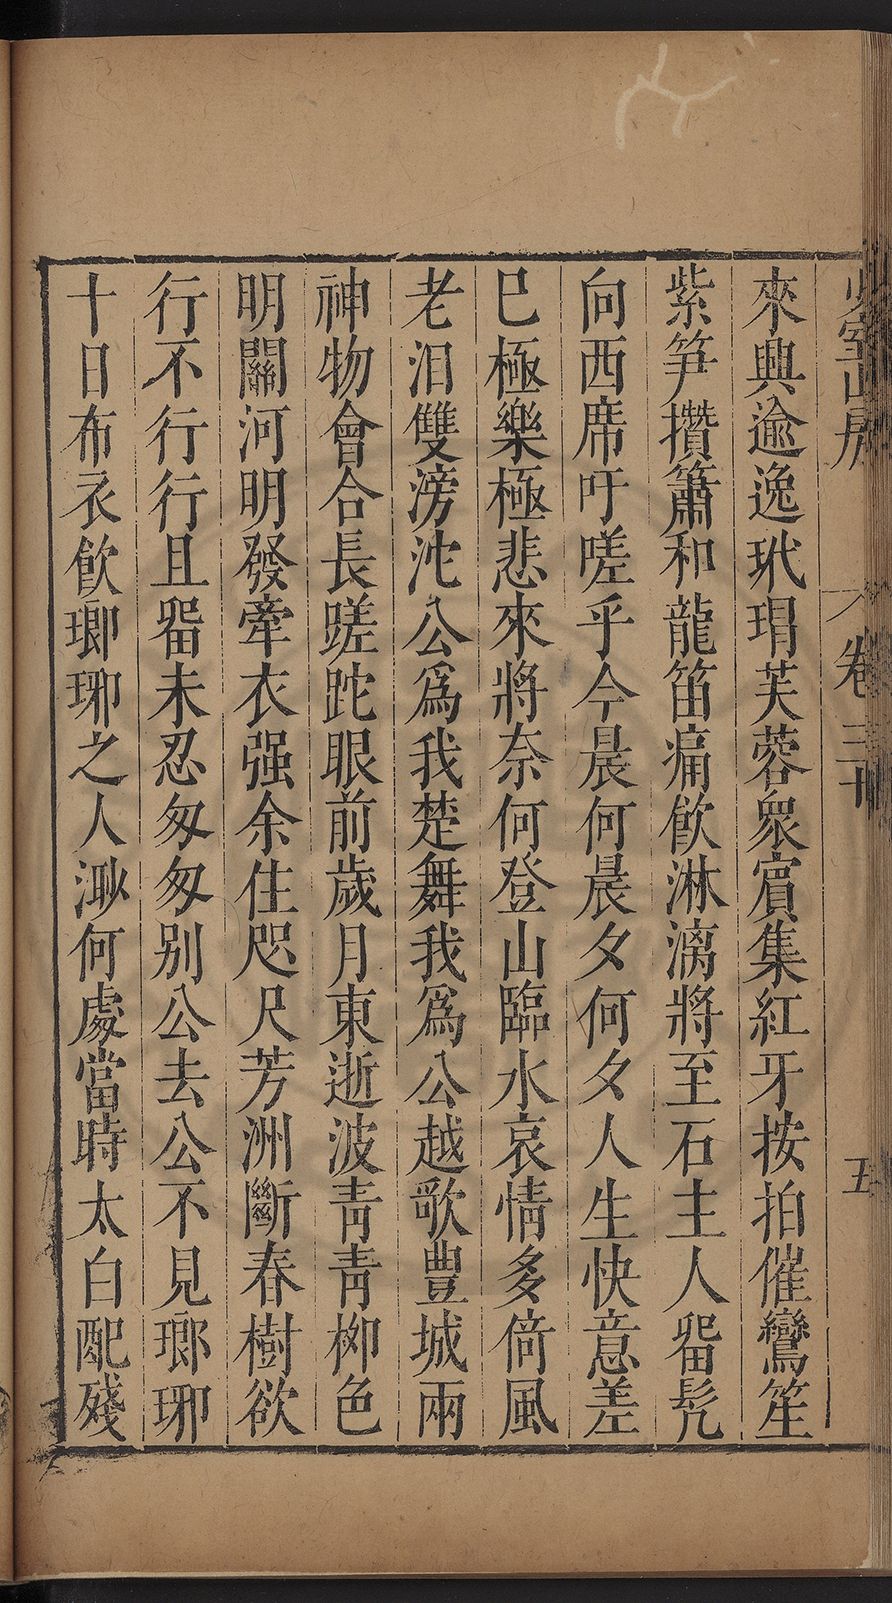 卷三十
五
來興逾逸玳瑁芙蓉衆賓集紅牙按拍催鸞笙
紫笋攢簫和龍笛痛飮淋漓將至石主人畱髠
向西席吁嗟乎今晨何晨夕何夕人生快意差
巳極樂極悲來將奈何登山臨水哀情多倚風
老泪雙滂沱公爲我楚舞我爲公越歌豐城兩
神物會合長蹉跎眼前歲月東逝波靑靑柳色
明關河明發牽衣强余住咫尺芳洲斷春樹欲
行不行行且畱未忍匆匆别公去公不見瑯琊
十日布衣飮瑯琊之人渺何處當時太白配殘